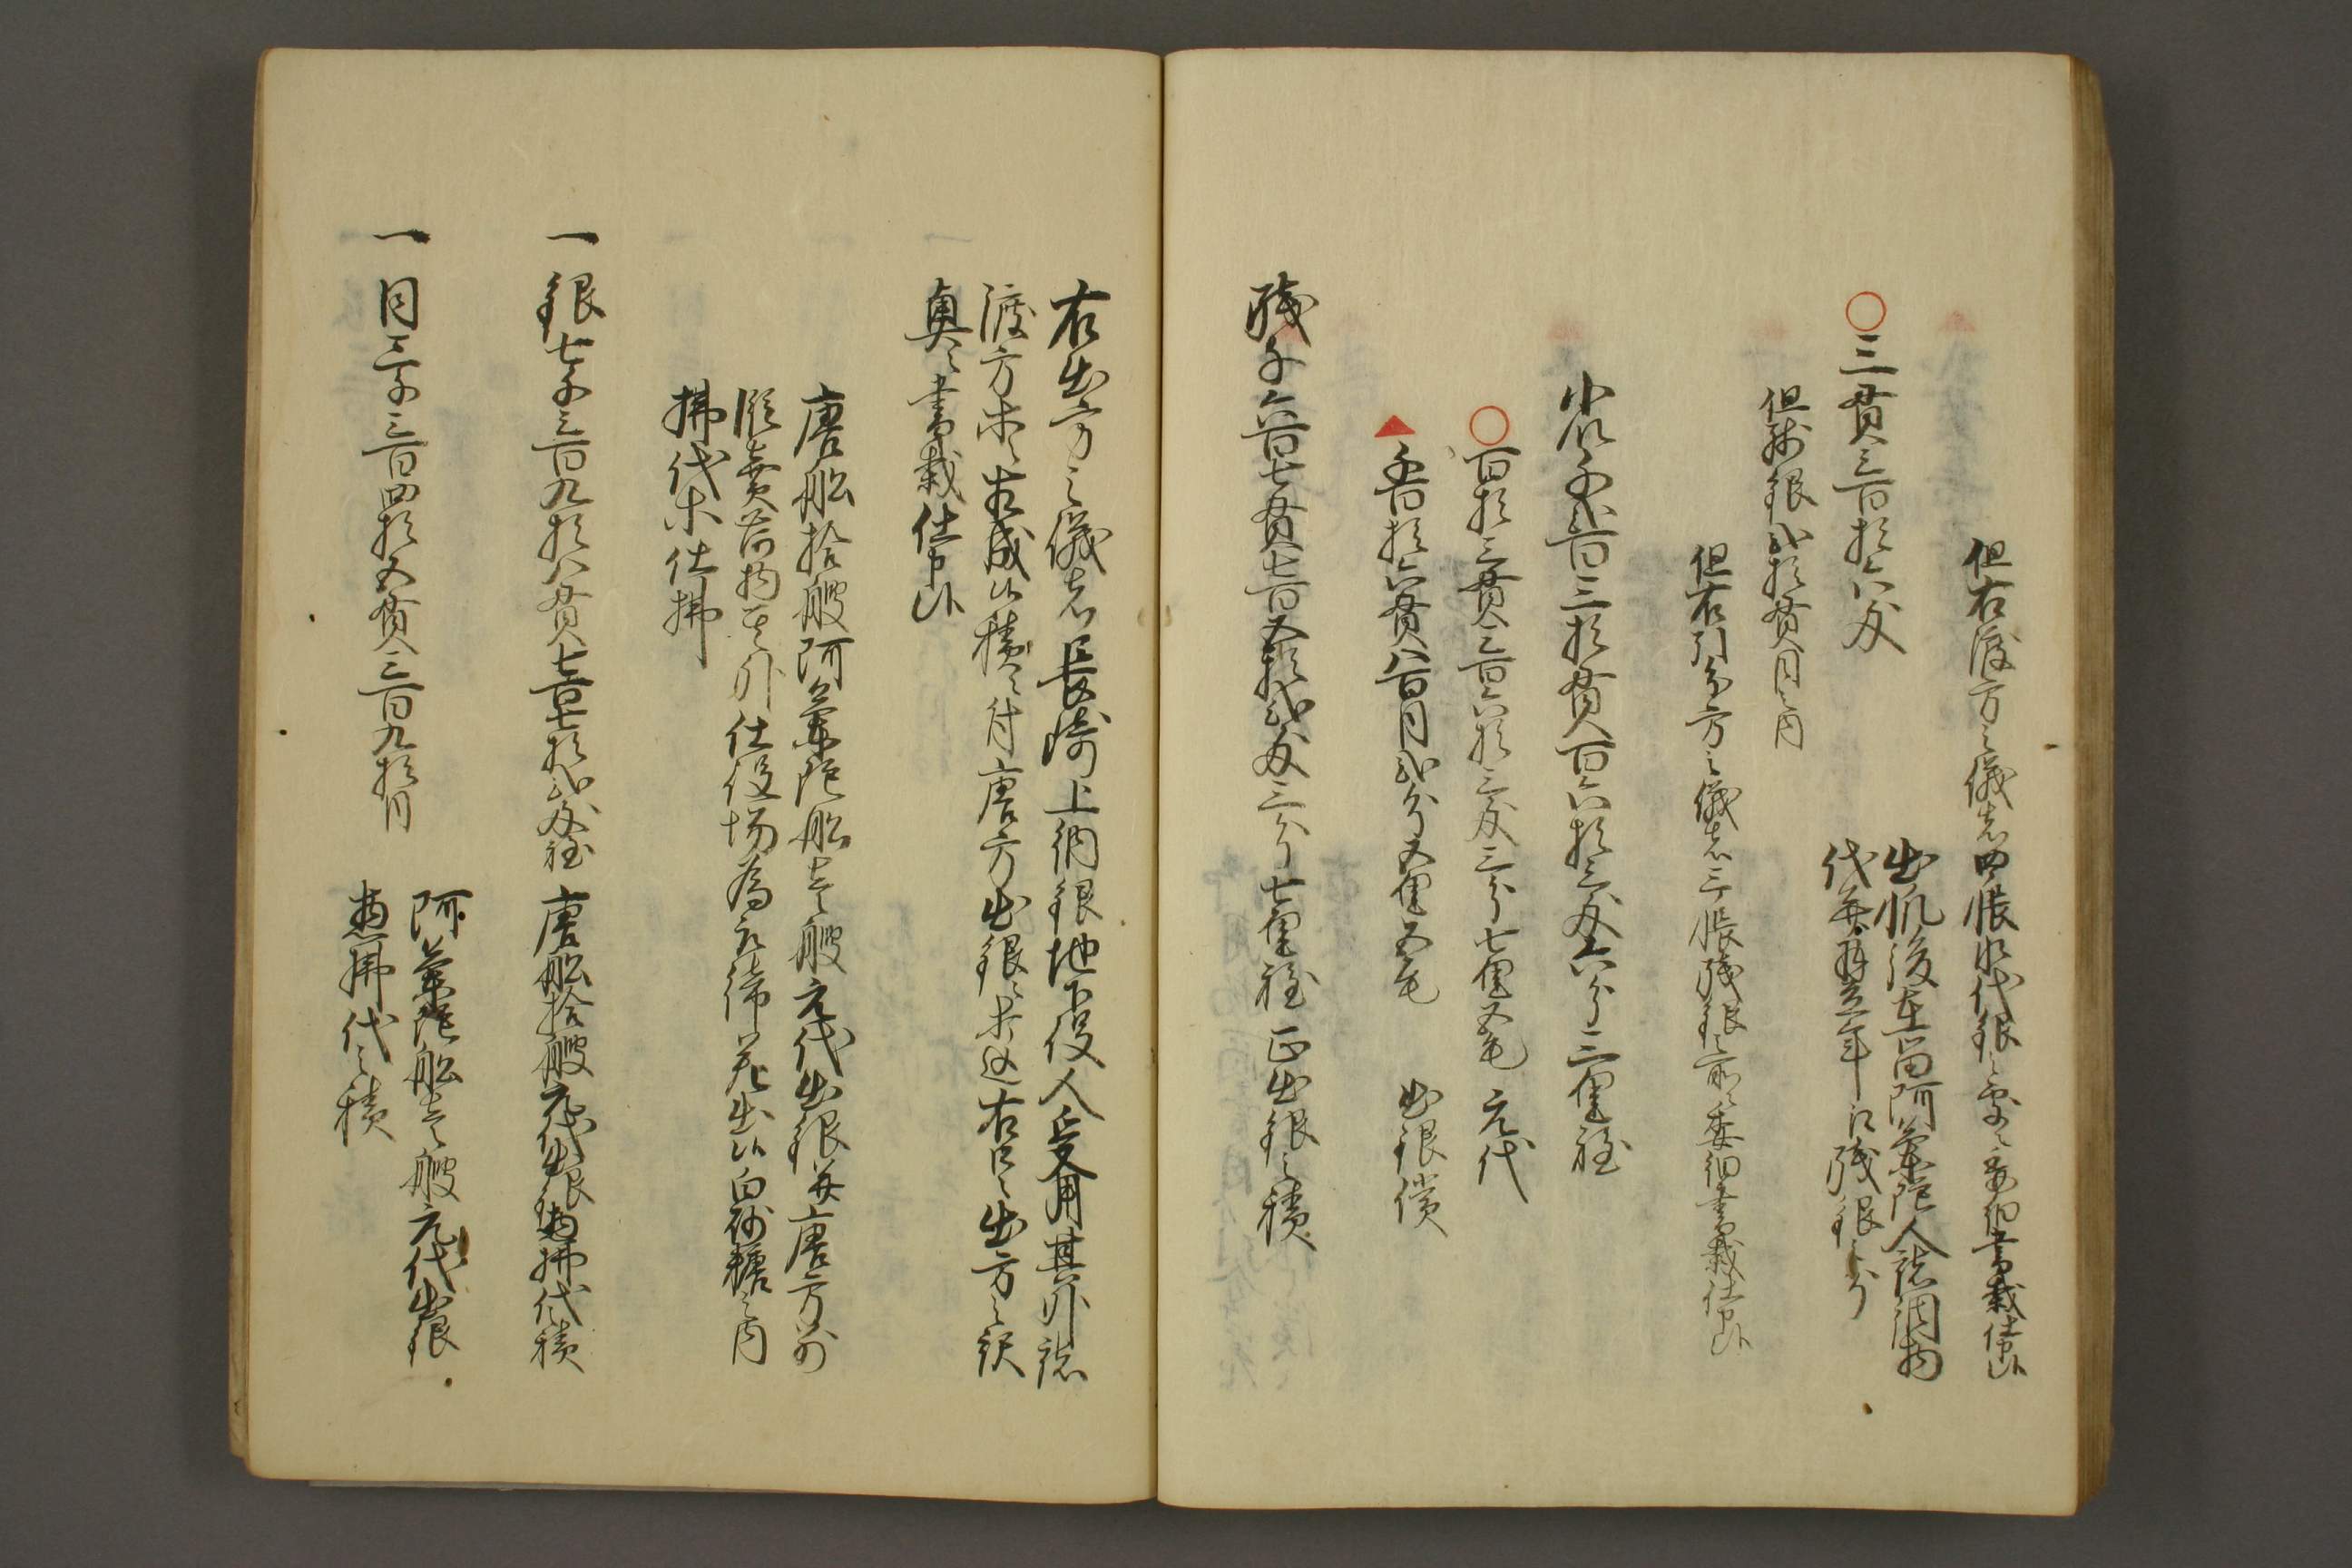 但右渡方之儀者四帳除代銀之處ニ委細書載仕申候
○三貫三百拾六匁
出帆後在留阿蘭陀人諸調物
代并丑年江残銀之分
但残銀弐拾貫目之内
但右引分方之儀者三帳残銀之前ニ委細書載仕申候
小以千弐百三拾貫百六拾三匁六分三厘程
○百拾三貫三百六拾三匁三分七厘五毛 元代
▲千百拾六貫八百目弐分五厘五毛 出銀償
残千六百七貫七百五拾弐匁三分七厘程 正出銀之積
右出方之儀者長崎上納銀地下役人受用其外諸
渡方ニ相成候積ニ付唐方出銀ニ而右口々出方之訳
奥ニ書載仕申候
唐船拾艘阿蘭陀船壱艘元代出銀并唐方別
段売荷物其外仕役場為取締差出候白砂糖之内
払代ニ仕払
一銀七千三百九拾八貫七百七拾弐匁程 唐船拾艘元代出銀惣払代積
一同三千三百四拾五貫三百九拾目
阿蘭陀船壱艘元代出銀
惣払代之積